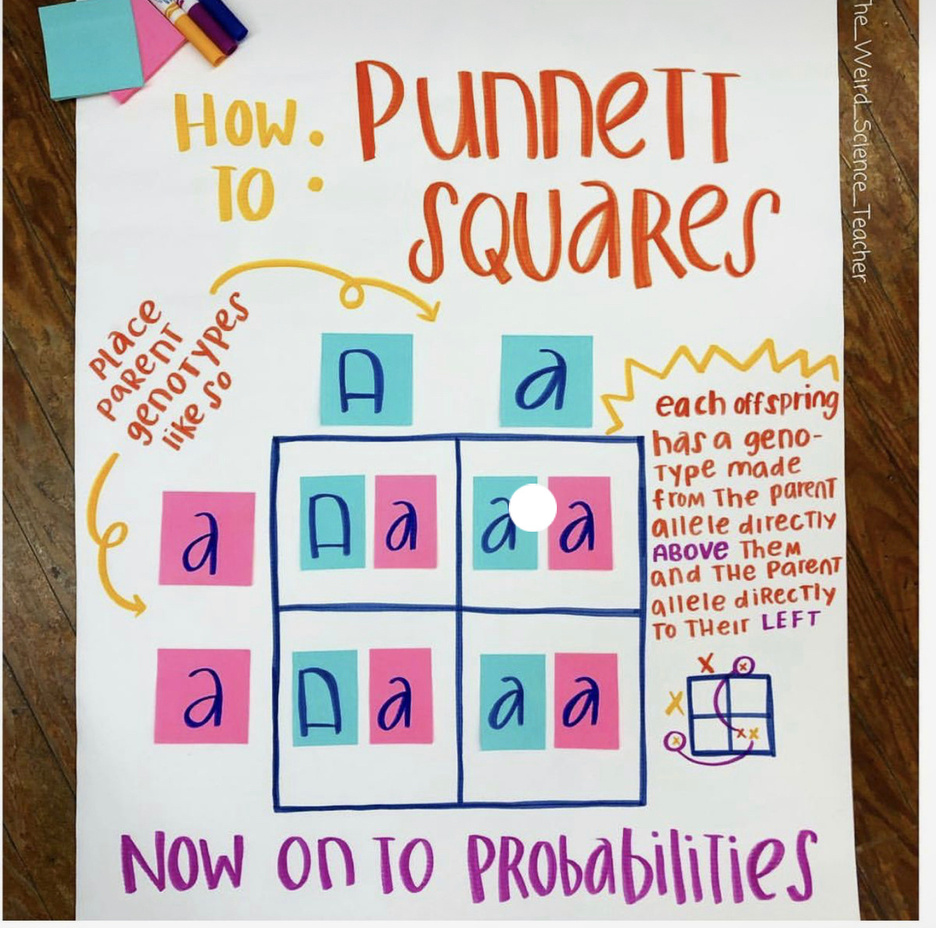 HOW : PUNNETT
TO SQUARES
PLACE
PARENT
GENOTYPES
like so
A a
each offspring
has a geno-
TYPE made
from THE parent
allele directly
ABOVE THEM
and THE PARENT
allele diRecTLY
TO THEIR LEFT
a A a a a
a A a a a
X x
X x x
x
NOW ON TO PRObabiliTies
The_Weird_Science_Teacher